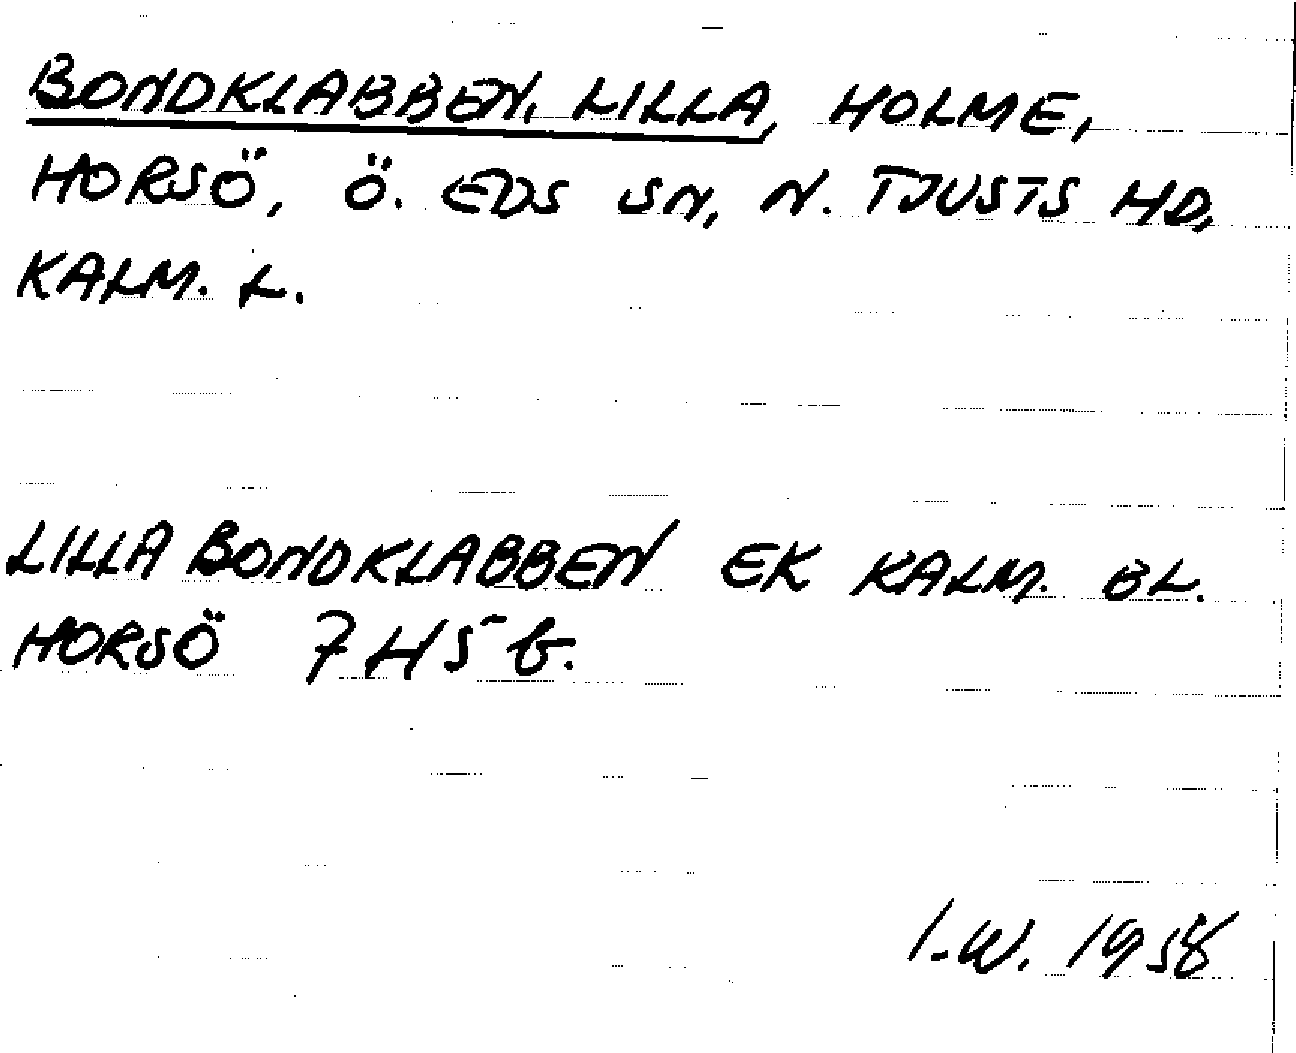 BONDKLABBEN, LILLA, HOLME,
HORSÖ, Ö. EDS SN, N. TJUSTS HD,
KALM. L.
LILLA BONDKLABBEN EK KALM. BL.
HORSÖ 7H5b.
I.W. 1958